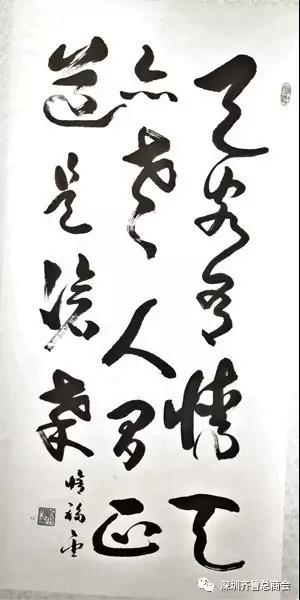 天若有情天
亦老人间正
道是滄桑
深圳齐鲁总商会